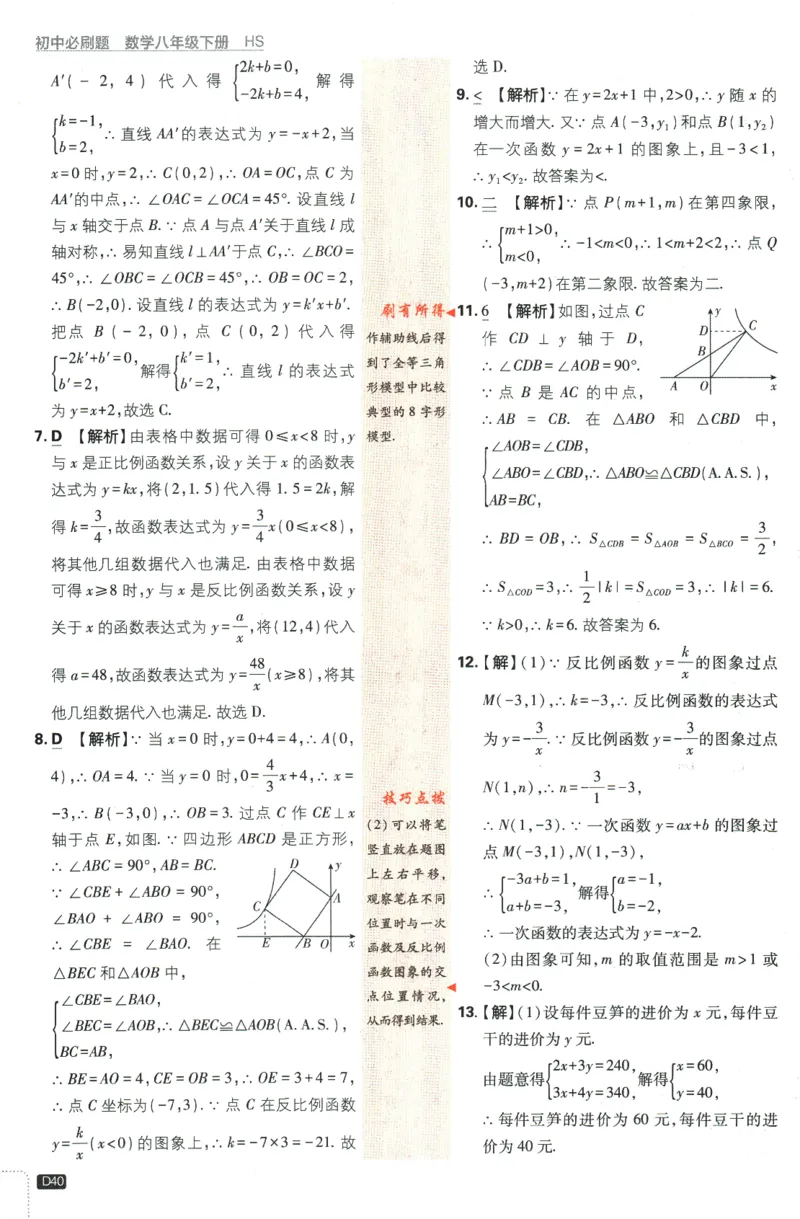 初中必刷题 数学八年级下册 HS
A′(-2,4)代入得{2k+b=0, -2k+b=4, 解得
{k=-1, b=2, ∴直线AA′的表达式为y=-x+2,当
x=0时,y=2,∴C(0,2),∴OA=OC,点C为
AA′的中点,∴∠OAC=∠OCA=45°.设直线l
与x轴交于点B.∵点A与点A′关于直线l成
轴对称,∴易知直线l⊥AA′于点C,∴∠BCO=
45°,∴∠OBC=∠OCB=45°,∴OB=OC=2,
∴B(-2,0).设直线l的表达式为y=k′x+b′.
把点B(-2,0),点C(0,2)代入得
{-2k′+b′=0, b′=2, 解得{k′=1, b′=2, ∴直线l的表达式
为y=x+2,故选C.
7.D 【解析】由表格中数据可得0≤x<8时,y
与x是正比例函数关系,设y关于x的函数表
达式为y=kx,将(2,1.5)代入得1.5=2k,解
得k=3/4,故函数表达式为y=3/4x(0≤x<8),
将其他几组数据代入也满足.由表格中数据
可得x≥8时,y与x是反比例函数关系,设y
关于x的函数表达式为y=a/x,将(12,4)代入
得a=48,故函数表达式为y=48/x(x≥8),将其
他几组数据代入也满足.故选D.
8.D 【解析】∵当x=0时,y=0+4=4,∴A(0,
4),∴OA=4.∵当y=0时,0=4/3x+4,∴x=
-3,∴B(-3,0),∴OB=3.过点C作CE⊥x
轴于点E,如图.∵四边形ABCD是正方形,
∴∠ABC=90°,AB=BC.
∵∠CBE+∠ABO=90°,
∠BAO+∠ABO=90°,
∴∠CBE=∠BAO.在
D y
C A
E B O x
△BEC和△AOB中,
{∠CBE=∠BAO,
∠BEC=∠AOB,∴△BEC≌△AOB(A.A.S.),
BC=AB,
∴BE=AO=4,CE=OB=3,∴OE=3+4=7,
∴点C坐标为(-7,3).∵点C在反比例函数
y=k/x(x<0)的图象上,∴k=-7×3=-21.故
D40
刷有所得
作辅助线后得
到了全等三角
形模型中比较
典型的8字形
模型.
技巧点拨
(2)可以将笔
竖直放在题图
上左右平移,
观察笔在不同
位置时与一次
函数及反比例
函数图象的交
点位置情况,
从而得到结果.
选D.
9.< 【解析】∵在y=2x+1中,2>0,∴y随x的
增大而增大.又∵点A(-3,y₁)和点B(1,y₂)
在一次函数y=2x+1的图象上,且-3<1,
∴y₁<y₂.故答案为<.
10.二 【解析】∵点P(m+1,m)在第四象限,
∴{m+1>0, m<0, ∴-1<m<0,∴1<m+2<2,∴点Q
(-3,m+2)在第二象限.故答案为二.
11.6 【解析】如图,过点C
作CD⊥y轴于D,
∴∠CDB=∠AOB=90°.
∵点B是AC的中点,
y
D C
B
A O x
∴AB=CB.在△ABO和△CBD中,
{∠AOB=∠CDB,
∠ABO=∠CBD,∴△ABO≌△CBD(A.A.S.),
AB=BC,
∴BD=OB,∴S△CDB=S△AOB=S△BCO=3/2,
∴S△COD=3,∴1/2|k|=S△COD=3,∴|k|=6.
∵k>0,∴k=6.故答案为6.
12.【解】(1)∵反比例函数y=k/x的图象过点
M(-3,1),∴k=-3,∴反比例函数的表达式
为y=-3/x.∵反比例函数y=-3/x的图象过点
N(1,n),∴n=-3/1=-3,
∴N(1,-3).∵一次函数y=ax+b的图象过
点M(-3,1),N(1,-3),
∴{-3a+b=1, a+b=-3, 解得{a=-1, b=-2,
∴一次函数的表达式为y=-x-2.
(2)由图象可知,m的取值范围是m>1或
-3<m<0.
13.【解】(1)设每件豆笋的进价为x元,每件豆
干的进价为y元.
由题意得{2x+3y=240, 3x+4y=340, 解得{x=60, y=40,
∴每件豆笋的进价为60元,每件豆干的进
价为40元.